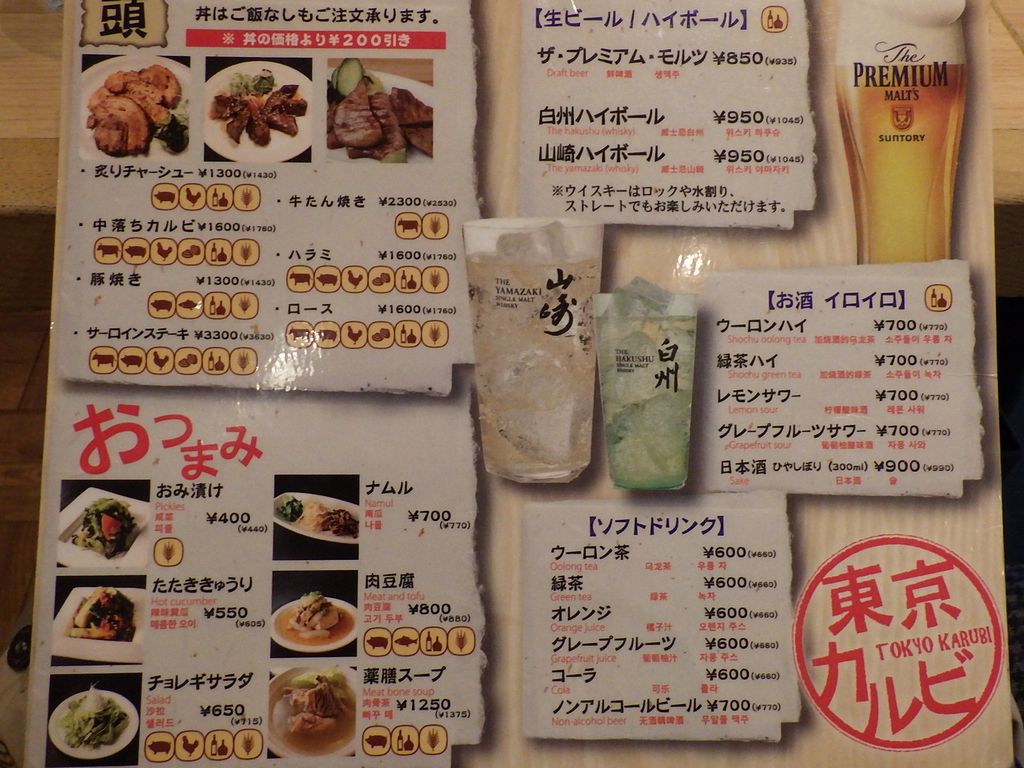 頭
丼はご飯なしもご注文承ります。
※ 丼の価格より¥200引き
・炙りチャーシュー ¥1300(¥1430)
・牛たん焼き ¥2300(¥2530)
・中落ちカルビ ¥1600(¥1760)
・ハラミ ¥1600(¥1760)
・豚焼き ¥1300(¥1430)
・ロース ¥1600(¥1760)
・サーロインステーキ ¥3300(¥3630)
おつまみ
おみ漬け
Pickles
咸菜 ¥400
피클 (¥440)
ナムル
Namul
¥700
나물 (¥770)
たたききゅうり
Hot cucumber
辣味黄瓜 ¥550
매콤한 오이 (¥605)
肉豆腐
Meat and tofu
肉豆腐 ¥800
고기 두부 (¥880)
チョレギサラダ
Salad
沙拉 ¥650
샐러드 (¥715)
薬膳スープ
Meat bone soup
肉骨茶 ¥1250
(¥1375)
【生ビール / ハイボール】
ザ・プレミアム・モルツ ¥850(¥935)
Draft beer 鮮啤酒 생맥주
白州ハイボール ¥950(¥1045)
The hakushu (whisky) 威士忌白州 위스키 하쿠슈
山崎ハイボール ¥950(¥1045)
The yamazaki (whisky) 威士忌山崎 위스키 야마자키
※ウイスキーはロックや水割り、
ストレートでもお楽しみいただけます。
The
PREMIUM
MALT'S
SUNTORY
THE
YAMAZAKI
SINGLE MALT
WHISKY
山崎
THE
HAKUSHU
SINGLE MALT
WHISKY
白州
【お酒 イロイロ】
ウーロンハイ ¥700(¥770)
Shochu oolong tea 加烧酒的乌龙茶 소주들이 우롱 차
緑茶ハイ ¥700(¥770)
Shochu green tea 加烧酒的綠茶 소주들이 녹차
レモンサワー ¥700(¥770)
Lemon sour 柠檬酸味酒 레몬 사워
グレープフルーツサワー ¥700(¥770)
Grapefruit sour 葡萄柚酸味酒 자몽 사와
日本酒 ひやしぼり (300ml) ¥900(¥990)
Sake 日本酒 술
【ソフトドリンク】
ウーロン茶 ¥600(¥660)
Oolong tea 乌龙茶 우롱 차
緑茶 ¥600(¥660)
Green tea 綠茶 녹차
オレンジ ¥600(¥660)
Orange juice 橘子汁 오렌지 주스
グレープフルーツ ¥600(¥660)
Grapefruit juice 葡萄柚汁 자몽 주스
コーラ ¥600(¥660)
Cola 可乐 콜라
ノンアルコールビール ¥700(¥770)
Non-alcohol beer 无酒精啤酒 무알콜 맥주
東京
カルビ
TOKYO KARUBI